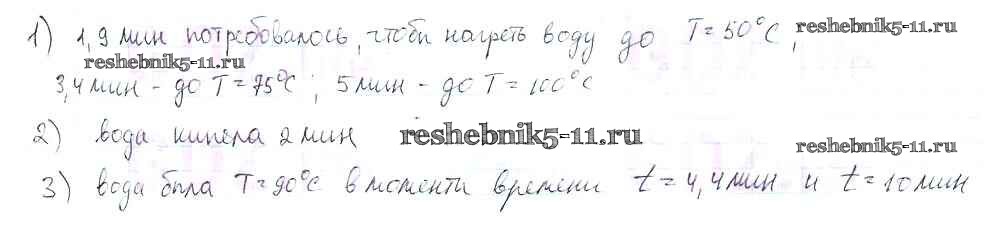 1) 1,9 мин потребовалось, чтобы нагреть воду до T=50°C,
reshebnik5-11.ru
reshebnik5-11.ru
3,4 мин - до T=75°C; 5 мин - до T=100°C
2) вода кипела 2 мин
reshebnik5-11.ru
reshebnik5-11.ru
3) вода была T=90°C в моменты времени t=4,4 мин и t=10 мин